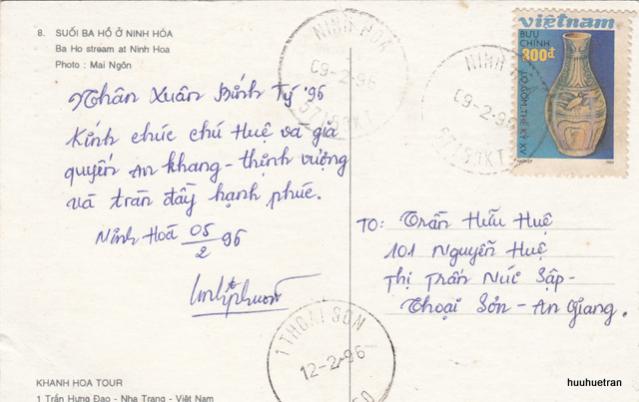 8. SUỐI BA HỒ Ở NINH HÓA
Ba Ho stream at Ninh Hoa
Photo : Mai Ngôn
Nhân Xuân Bính Tý '96
Kính chúc chú Huệ và gia
quyến An khang - thịnh vượng
và tràn đầy hạnh phúc.
Ninh Hoà 05/2 96
việtnam
BƯU CHÍNH
300đ
LỌ GỐM THẾ KỶ XV
NINH HOA
09-2-96
57153KT
NINH HOA
09-2-96
57153KT
TO: Trần Hữu Huệ
101 Nguyễn Huệ
Thị Trấn Núi Sập -
Thoại Sơn - An Giang.
1 THOAI SON
12-2-96
KHANH HOA TOUR
1 Trần Hưng Đạo - Nha Trang - Việt Nam
huuhuetran